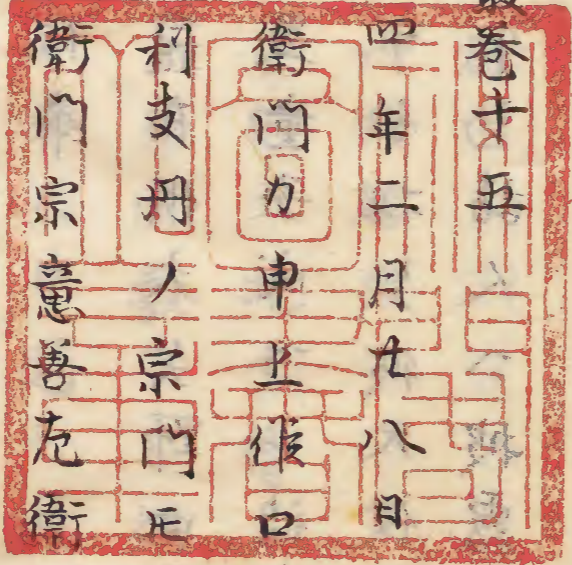 巻十五
四年二月廿八日
衛門カ申上候口
利支丹ノ宗門
衛門宗意善左衛